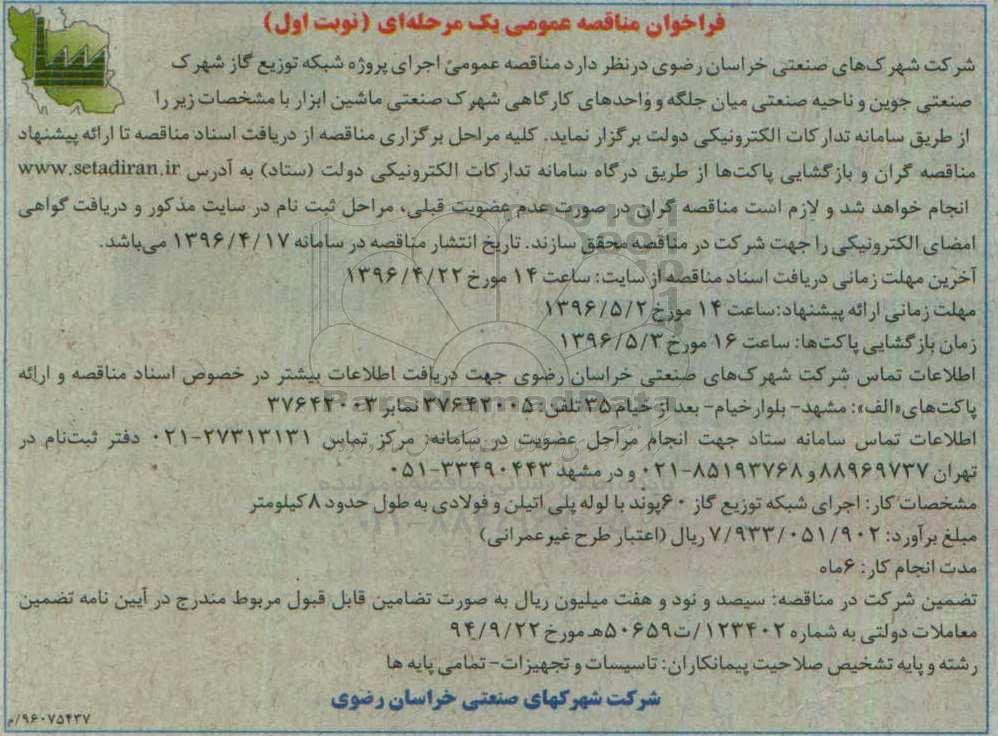 فراخوان مناقصه عمومی یک مرحله‌ای (نوبت اول)
شرکت شهرک‌های صنعتی خراسان رضوی درنظر دارد مناقصه عمومی اجرای پروژه شبکه توزیع گاز شهرک
صنعتی جوین و ناحیه صنعتی میان جلگه و واحدهای کارگاهی شهرک صنعتی ماشین ابزار با مشخصات زیر را
از طریق سامانه تدارکات الکترونیکی دولت برگزار نماید. کلیه مراحل برگزاری مناقصه از دریافت اسناد مناقصه تا ارائه پیشنهاد
مناقصه گران و بازگشایی پاکت‌ها از طریق درگاه سامانه تدارکات الکترونیکی دولت (ستاد) به آدرس www.setadiran.ir
انجام خواهد شد و لازم است مناقصه گران در صورت عدم عضویت قبلی، مراحل ثبت نام در سایت مذکور و دریافت گواهی
امضای الکترونیکی را جهت شرکت در مناقصه محقق سازند. تاریخ انتشار مناقصه در سامانه ۱۳۹۶/۴/۱۷ می‌باشد.
آخرین مهلت زمانی دریافت اسناد مناقصه از سایت: ساعت ۱۴ مورخ ۱۳۹۶/۴/۲۲
مهلت زمانی ارائه پیشنهاد: ساعت ۱۴ مورخ ۱۳۹۶/۵/۲
زمان بازگشایی پاکت‌ها: ساعت ۱۶ مورخ ۱۳۹۶/۵/۳
اطلاعات تماس شرکت شهرک‌های صنعتی خراسان رضوی جهت دریافت اطلاعات بیشتر در خصوص اسناد مناقصه و ارائه
پاکت‌های «الف»: مشهد- بلوار خیام- بعد از خیام ۳۵ تلفن: ۳۷۶۴۲۰۰۵ نمابر ۳۷۶۴۲۰۰۳
اطلاعات تماس سامانه ستاد جهت انجام مراحل عضویت در سامانه: مرکز تماس ۲۷۳۱۳۱۳۱-۰۲۱ دفتر ثبت‌نام در
تهران ۸۸۹۶۹۷۳۷ و ۸۵۱۹۳۷۶۸-۰۲۱ و در مشهد ۳۳۴۹۰۴۴۳-۰۵۱
مشخصات کار: اجرای شبکه توزیع گاز ۶۰ پوند با لوله پلی اتیلن و فولادی به طول حدود ۸ کیلومتر
مبلغ برآورد: ۷/۹۳۳/۰۵۱/۹۰۲ ریال (اعتبار طرح غیرعمرانی)
مدت انجام کار: ۶ ماه
تضمین شرکت در مناقصه: سیصد و نود و هفت میلیون ریال به صورت تضامین قابل قبول مربوط مندرج در آیین نامه تضمین
معاملات دولتی به شماره ۱۲۳۴۰۲/ت۵۰۶۵۹هـ مورخ ۹۴/۹/۲۲
رشته و پایه تشخیص صلاحیت پیمانکاران: تاسیسات و تجهیزات- تمامی پایه ها
شرکت شهرکهای صنعتی خراسان رضوی
۹۶۰۷۵۴۳۷/م